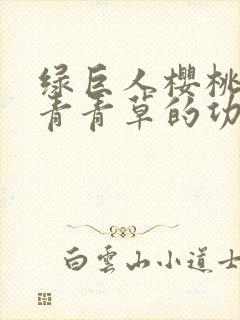 绿巨人樱桃
青青草的功
白雲山小道士